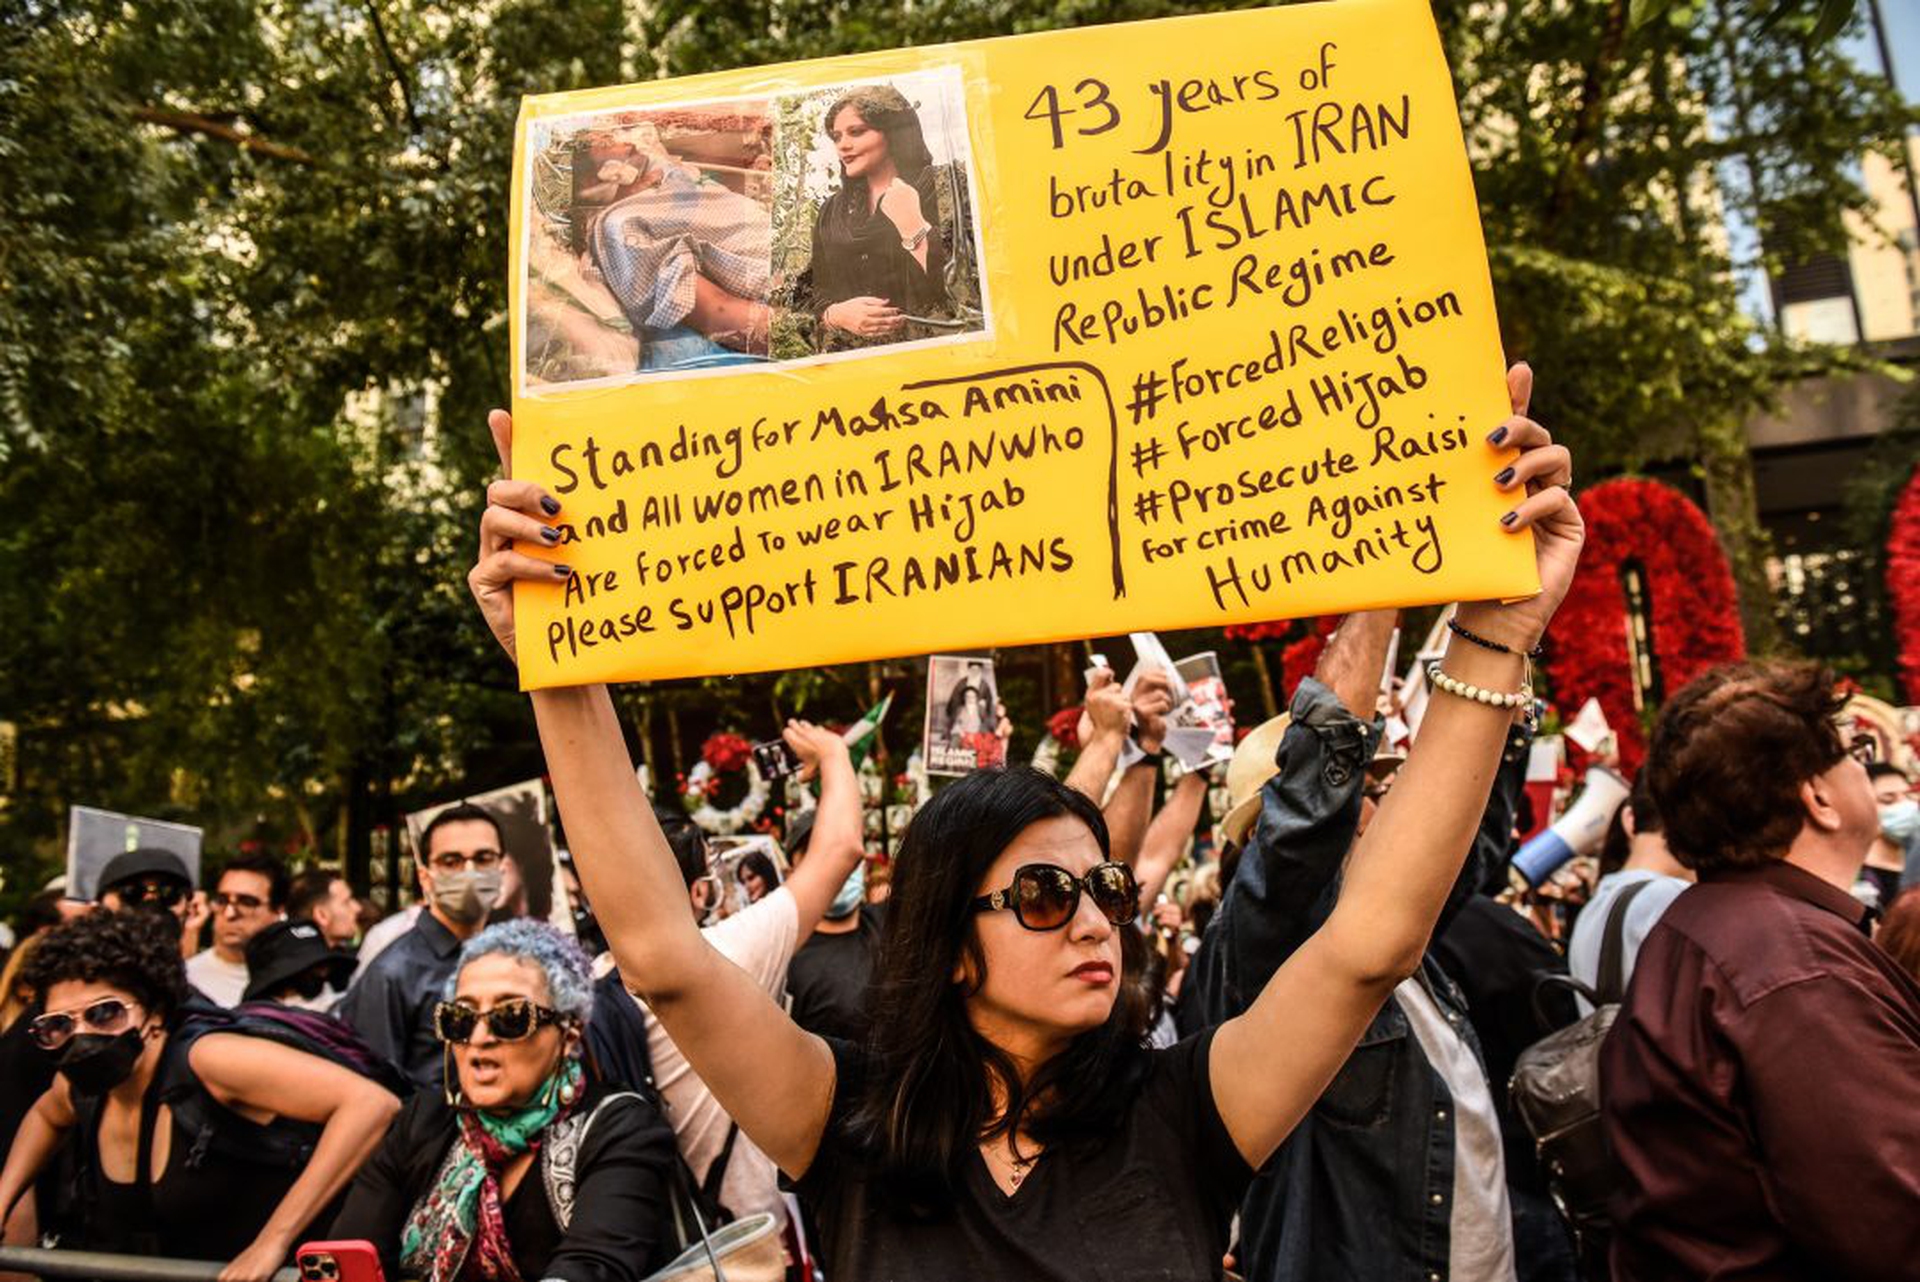 43 years of
brutality in IRAN
under ISLAMIC
Republic Regime
#ForcedReligion
#Forced Hijab
#Prosecute Raisi
For crime Against
Humanity
Standing for Mahsa Amini
and All women in IRAN Who
Are Forced To wear Hijab
Please support IRANIANS
ISLAMIC
REGIME